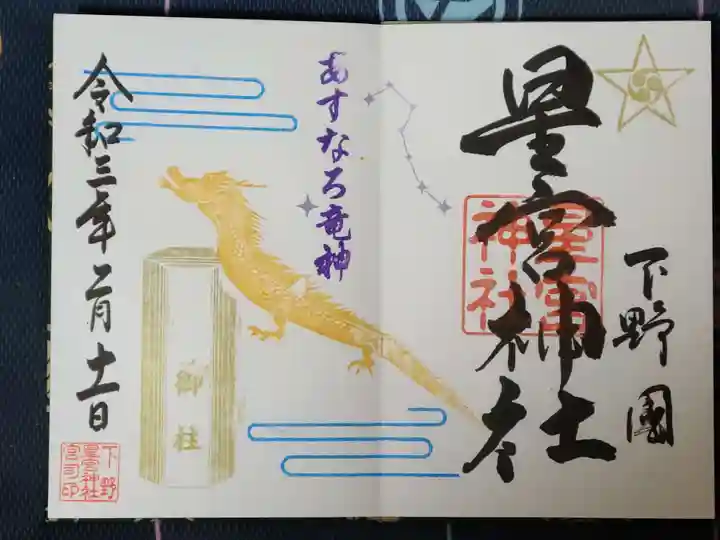 下野國
星宮神社参
星宮
神社
あすなろ竜神
御柱
令和三年二月十一日
下野
星宮神社
宮司印